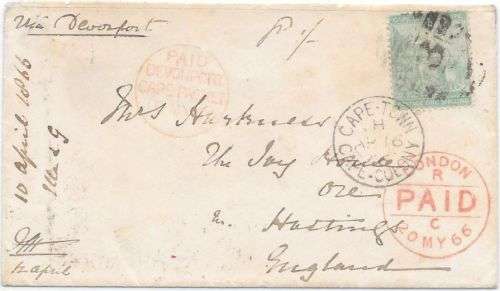 Via Devonport
PAID
DEVONPORT
CAPE PACKET
10 april 1866
CAPE-TOWN
H
AP 16
CAPE-COLONY
Mrs Harkness
The Ivy House
Ore
nr. Hastings
England
LONDON
R
PAID
C
20 MY 66
12 april